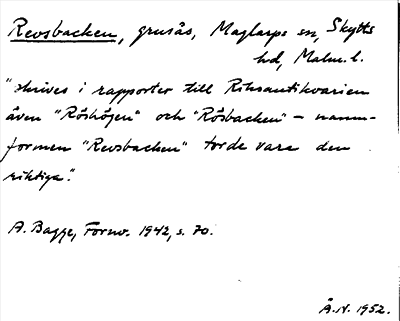 Revsbacken, grusås, Maglarps sn, Skytts
hd, Malm. l.
"skrives i rapporter till Riksantikvarien
även "Röshögen" och "Rösbacken" – namn-
formen "Revsbacken" torde vara den
riktiga".
A. Bagge, Fornv. 1942, s. 70.
Å. N. 1952.